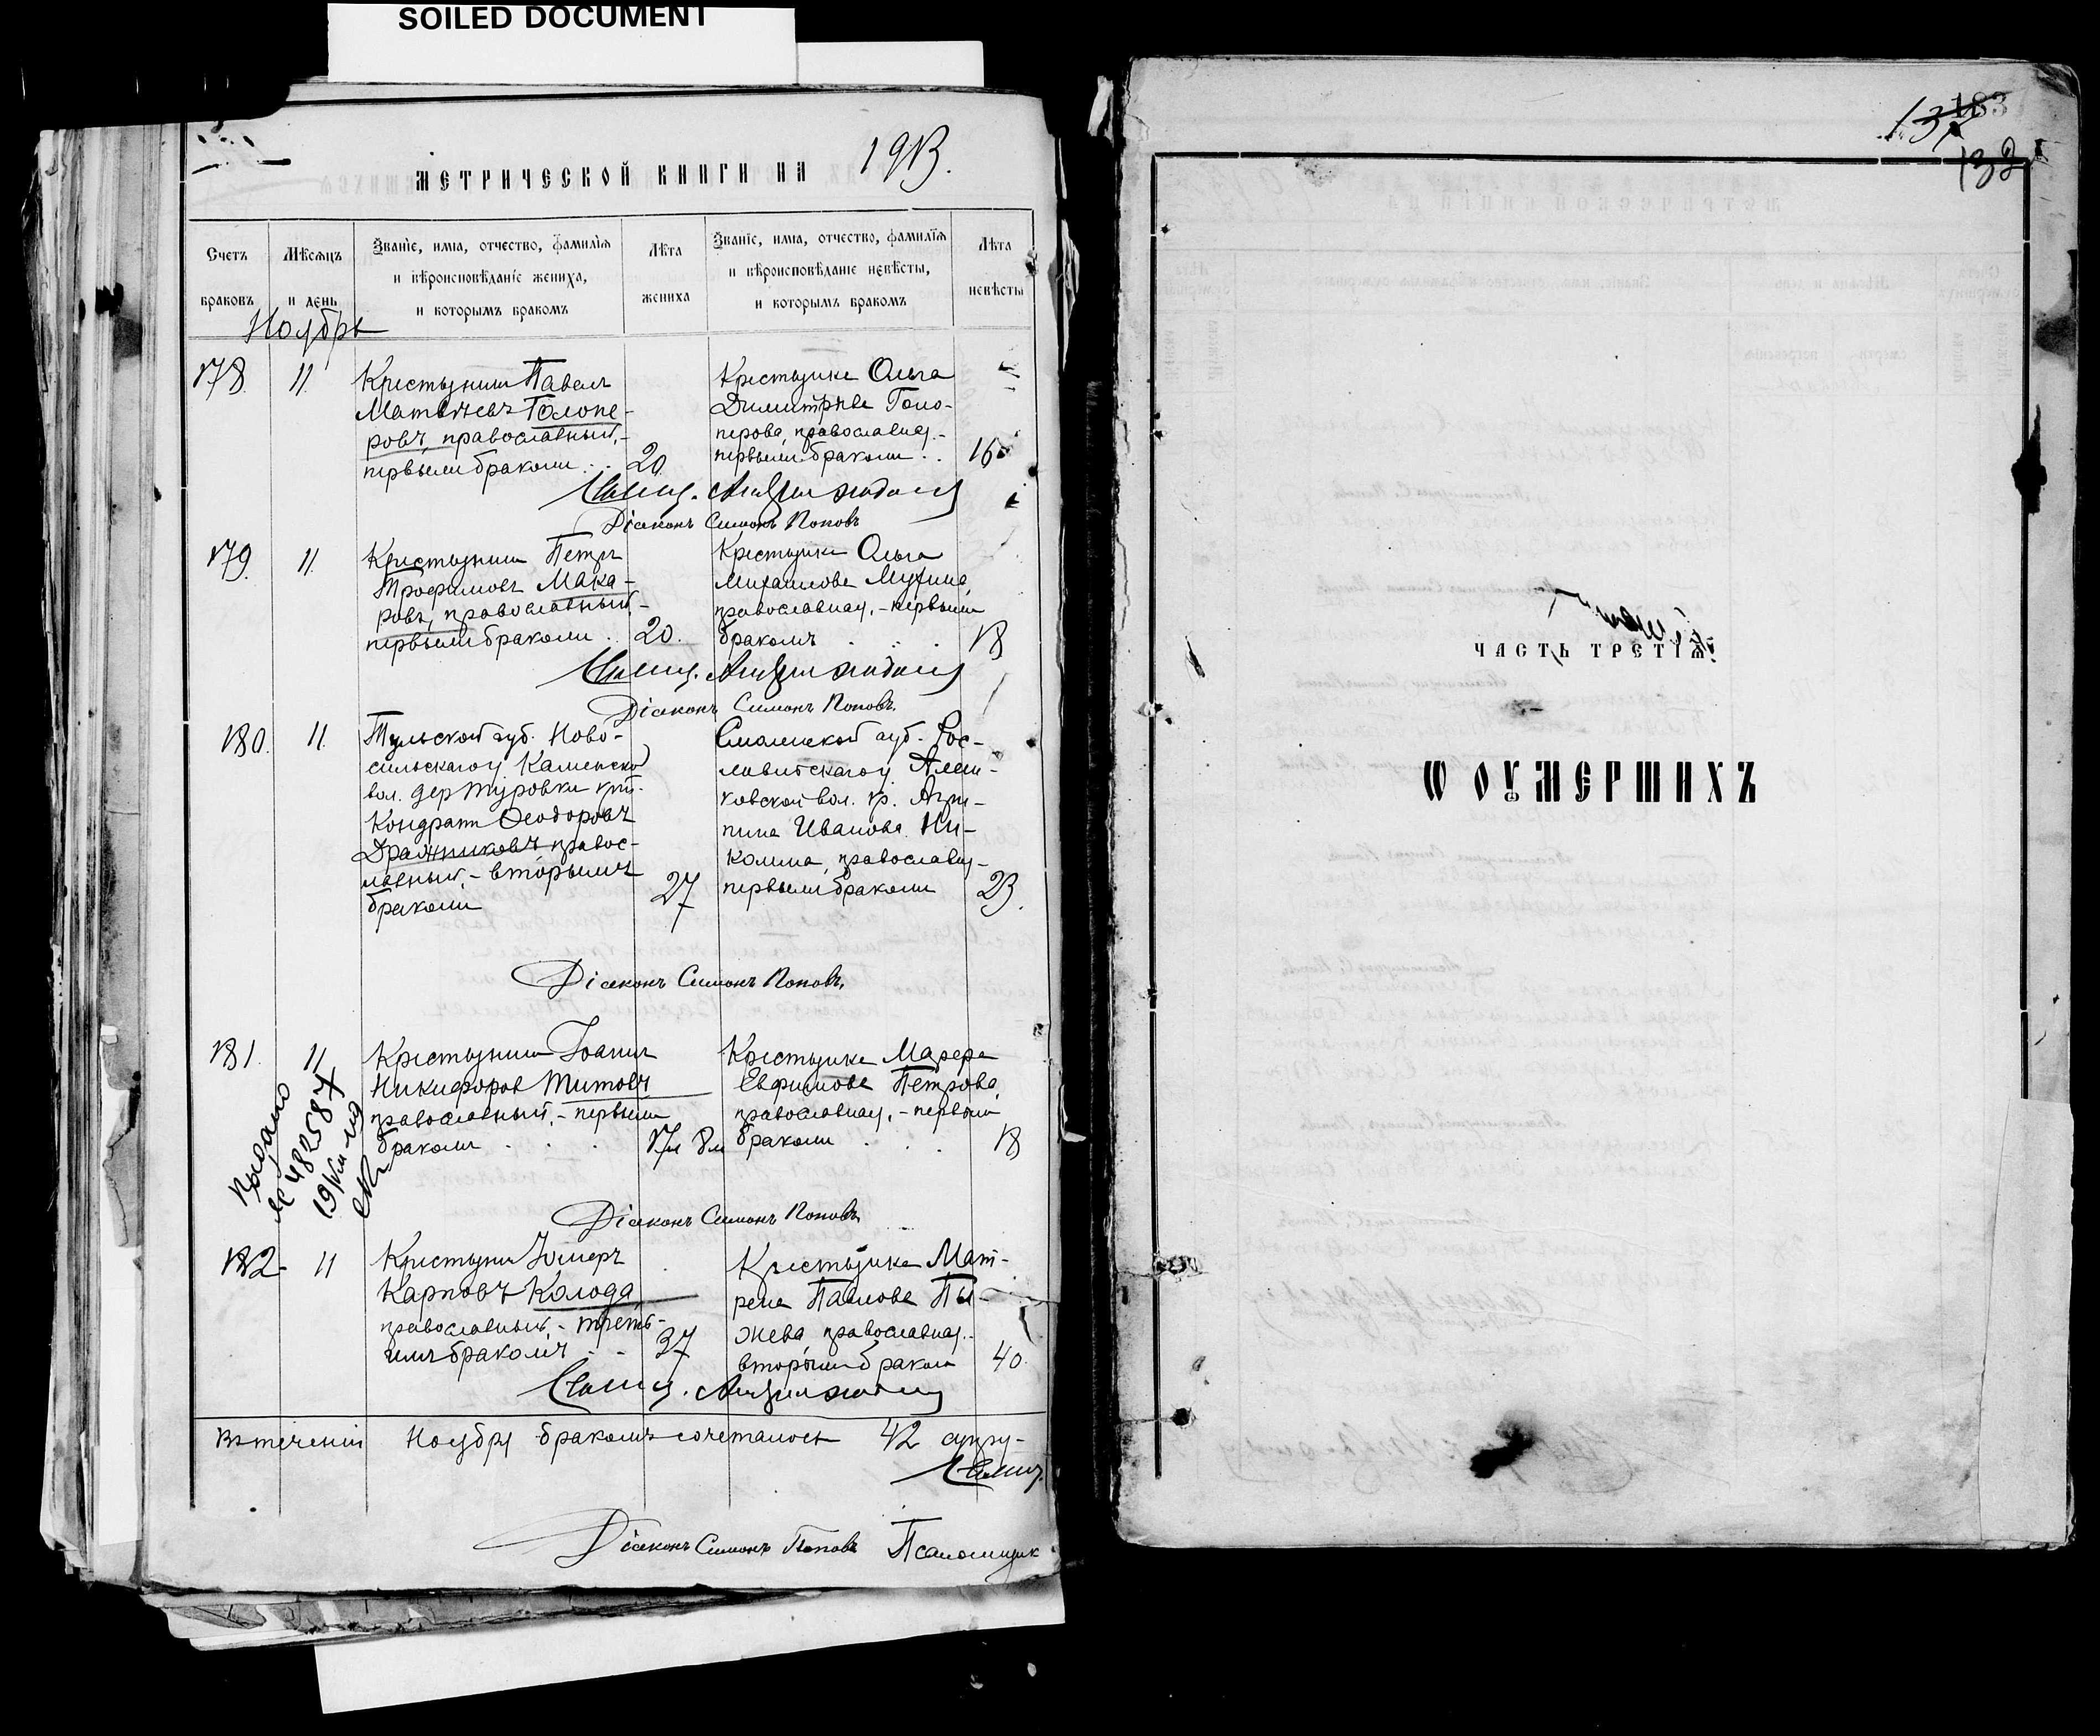 SOILED DOCUMENT
МЕТРИЧЕСКОЙ КНИГИ НА 1913.
Счетъ браковъ
Мѣсѧцъ и день
Званіе, имѧ, отчество, фамилїѧ
и вѣроисповѣданіе жениха,
и которымъ бракомъ
Лѣта жениха
Званіе, имѧ, отчество, фамилїѧ
и вѣроисповѣданіе невѣсты,
и которымъ бракомъ
Лѣта невѣсты
Ноябрь
178. 11.
Крестьянинъ Павелъ
Матвѣевъ Голопе-
ровъ, православный, -
первымъ бракомъ . . 20.
Крестьянка Ольга
Димитріева Голо-
перова, православная, -
первымъ бракомъ . . 16
Діаконъ Симонъ Поповъ
179. 11.
Крестьянинъ Петръ
Трофимовъ Мака-
ровъ, православный -
первымъ бракомъ . . 20.
Крестьянка Ольга
Михаилова Мухина,
православная, - первымъ
бракомъ . . . 18
Діаконъ Симонъ Поповъ.
180. 11.
Тульской губ. Ново-
сильскаго у. Каменской
вол. дер. Туровки кр.
Кондратъ Ѳеодоровъ
Дражниковъ правос-
лавный, - вторымъ
бракомъ 27
Смоленской губ. Рос-
лавльскаго у.
вол. кр. Агри-
пина Иванова Ни-
православная -
первымъ бракомъ 23.
Діаконъ Симонъ Поповъ.
181. 11
Крестьянинъ Іоаннъ
Никифоровъ Титовъ,
православный, - первымъ
бракомъ . . . 17л 8м
Крестьянка Марѳа
Евфимова Петрова,
православная, - первымъ
бракомъ . . . 18
№ 482587
Діаконъ Симонъ Поповъ.
182. 11
Крестьянинъ
Карповъ Колода
православный, - треть-
имъ бракомъ . . 37
Крестьянка Мат-
рена Павлова Пы-
жева, православная, -
вторымъ бракомъ 40.
Въ теченіи Ноября бракомъ сочеталось 42 супру-
Діаконъ Симонъ Поповъ Псаломщикъ
183
137
132
ЧАСТЬ ТРЕТІѦ
Ѡ ОУМЕРШИХЪ